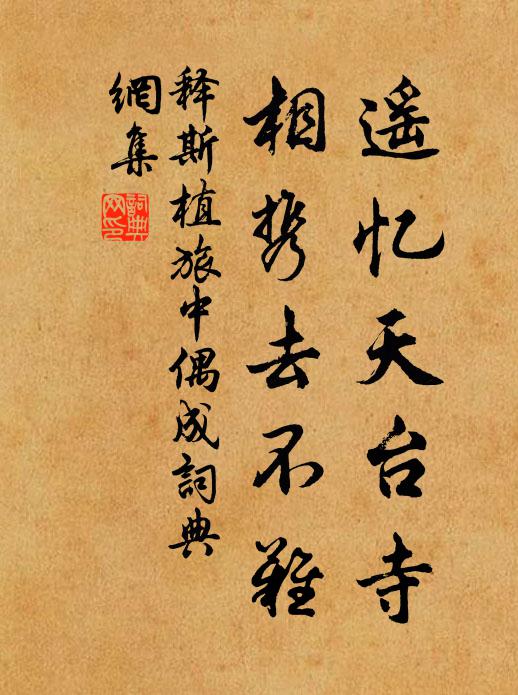 遥忆天台寺
相携去不难
释斯植旅中偶成詞典
網集
詞典网印